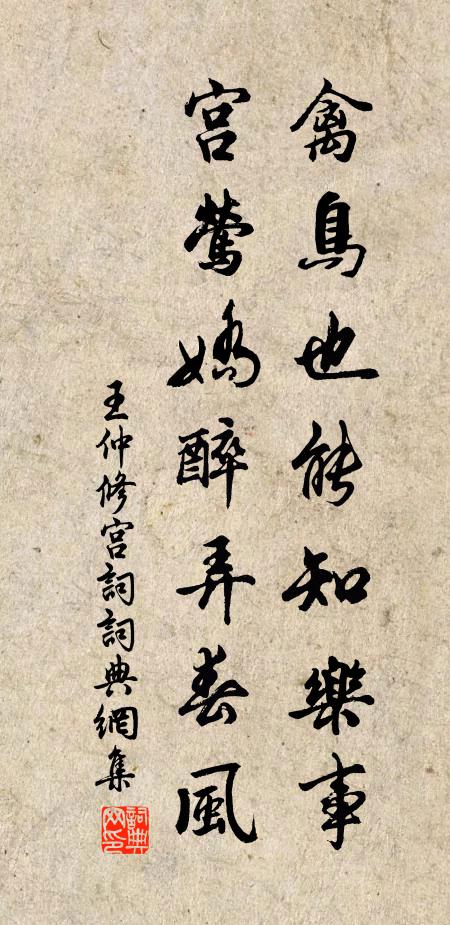 禽鳥也能知樂事
宮鶯嬌醉弄春風
王仲修宮詞詞典網集
詞典網印